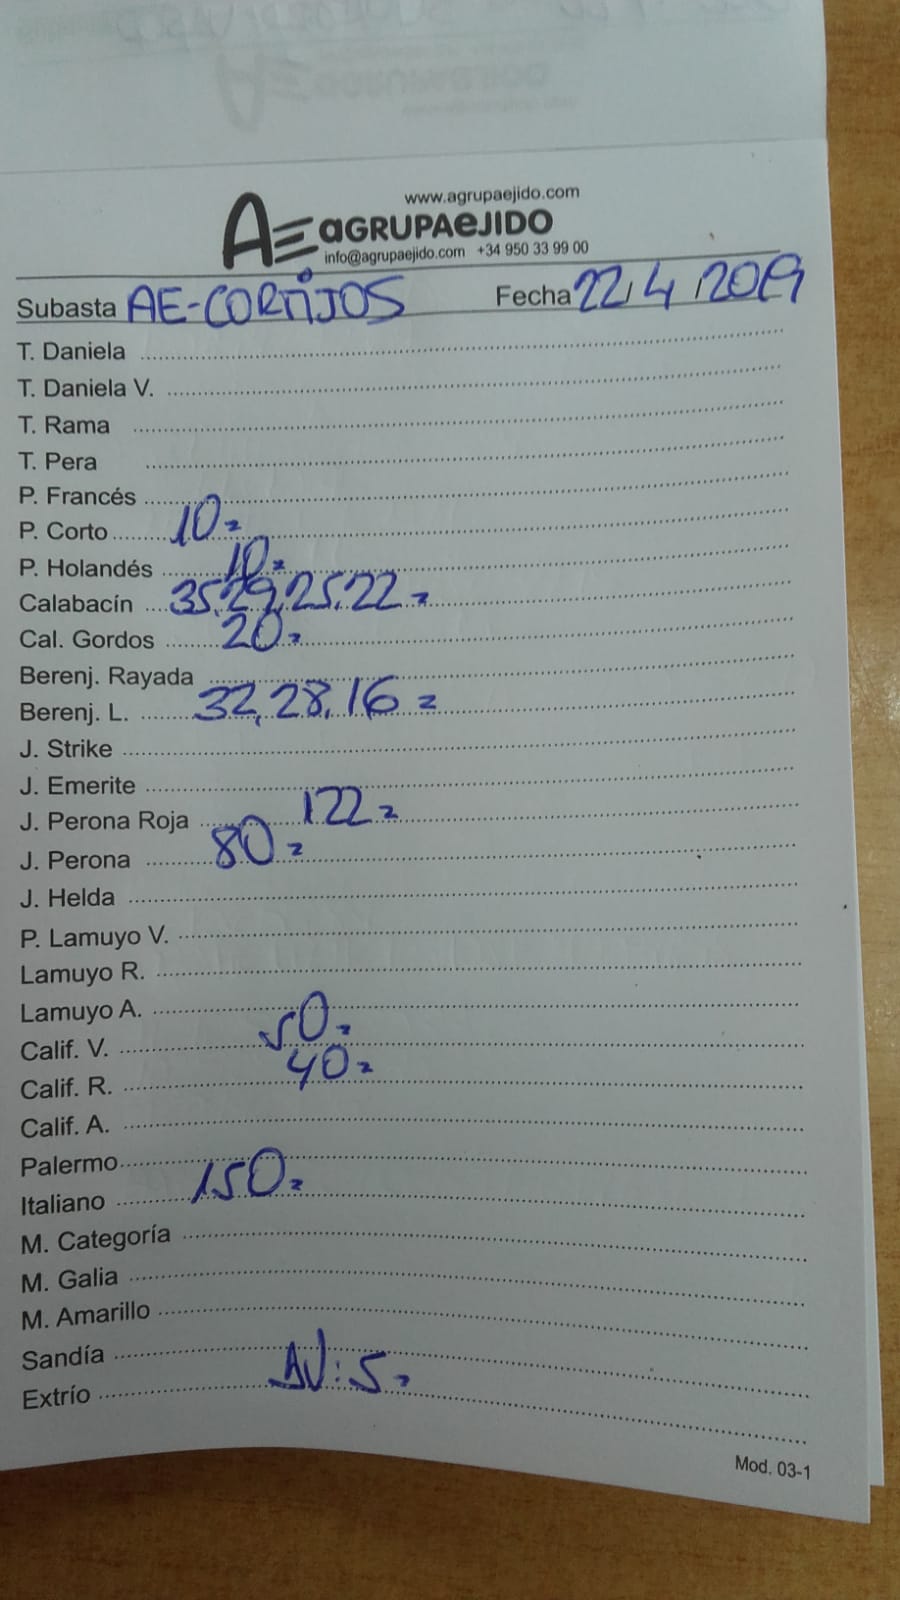 www.agrupaejido.com
AE aGRUPAeJIDO
info@agrupaejido.com +34 950 33 99 00
Subasta AE-CORTIJOS Fecha 22/4/2019
T. Daniela
T. Daniela V.
T. Rama
T. Pera
P. Francés
P. Corto 10=
P. Holandés 10=
Calabacín 35,29,25,22=
Cal. Gordos 20=
Berenj. Rayada
Berenj. L. 32,28,16=
J. Strike
J. Emerite
J. Perona Roja 122=
J. Perona 80=
J. Helda
P. Lamuyo V.
Lamuyo R.
Lamuyo A.
Calif. V. 50=
Calif. R. 40=
Calif. A.
Palermo
Italiano 150=
M. Categoría
M. Galia
M. Amarillo
Sandía
Extrío AV:5=
Mod. 03-1